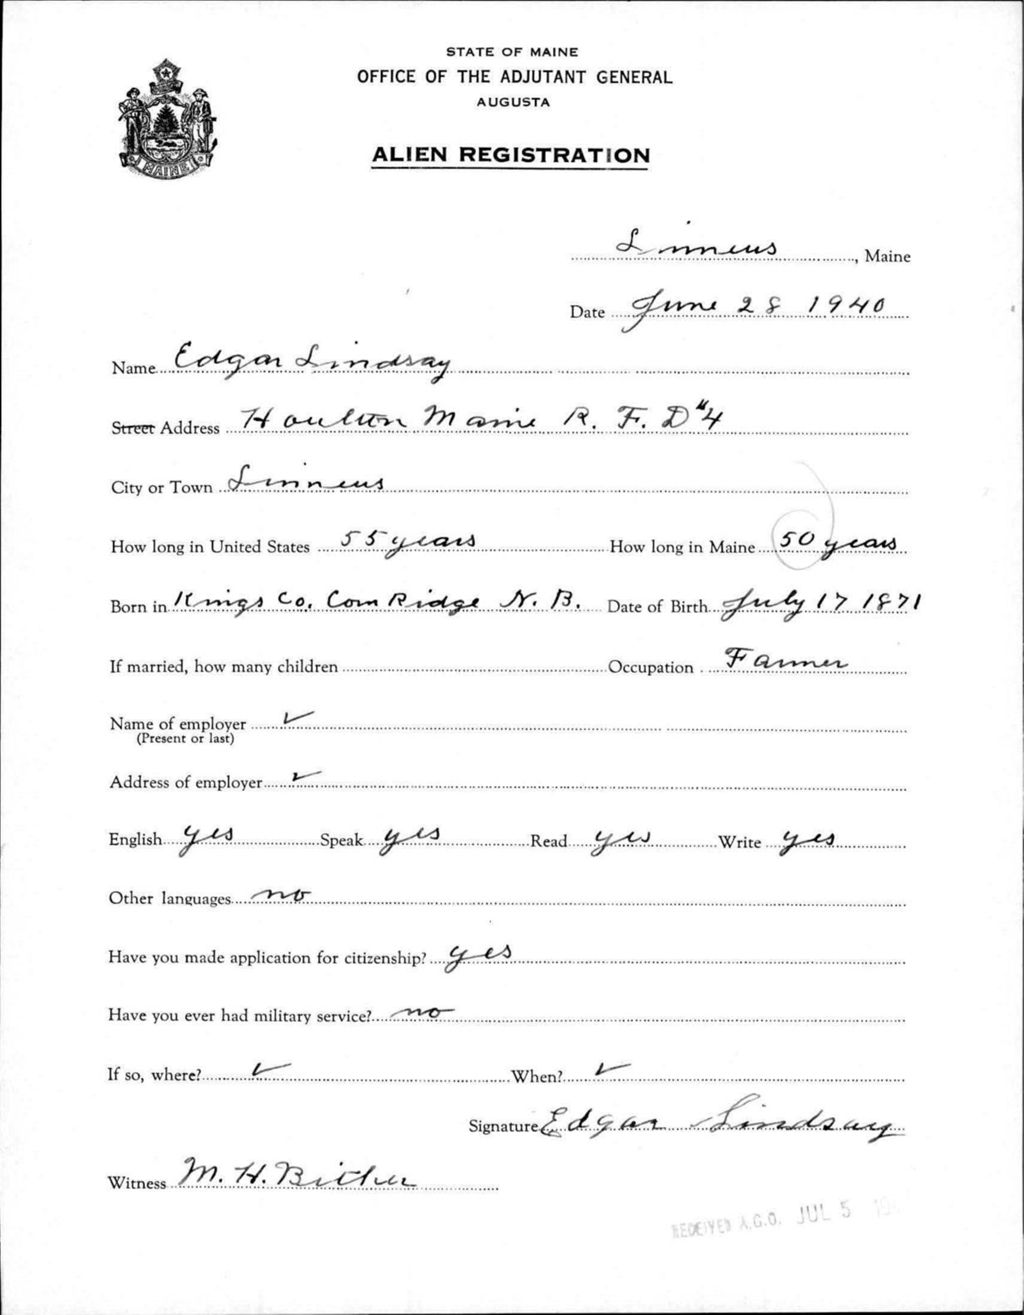 STATE OF MAINE
OFFICE OF THE ADJUTANT GENERAL
AUGUSTA
ALIEN REGISTRATION
MAINE
Linneus, Maine
Date June 28 1940
Name Edgar Lindsay
Street Address Houlton Maine R. F. D "4
City or Town Linneus
How long in United States 55 years How long in Maine 50 years
Born in Kings Co. Corn Ridge N. B. Date of Birth July 17 1871
If married, how many children Occupation Farmer
Name of employer ✓
(Present or last)
Address of employer ✓
English yes Speak yes Read yes Write yes
Other languages no
Have you made application for citizenship? yes
Have you ever had military service? no
If so, where? ✓ When? ✓
Signature Edgar Lindsay
Witness M. H. Bither
RECEIVED A.G.O. JUL 5